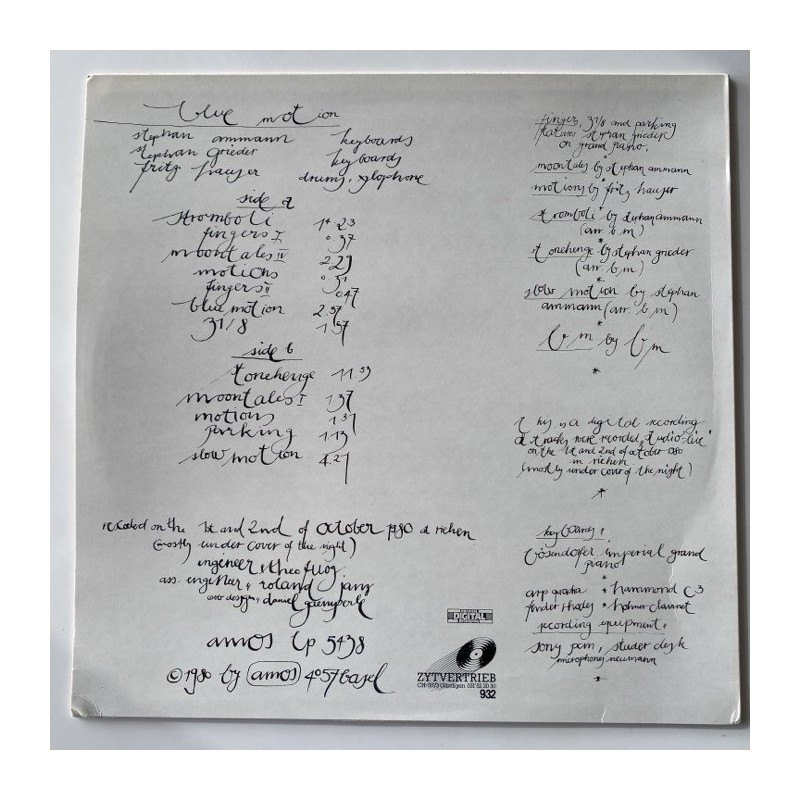 blue motion
stephan ammann keyboards
stephan grieder keyboards
fritz hauser drums, xylophone
side a
stromboli 14.23
fingers I 0.37
moontales IV 2.29
motions 0.51
fingers II 0.47
blue motion 2.57
31/8 1.57
side b
stonehenge 11.59
moontales I 1.37
motions 1.31
parking 1.13
slow motion 4.21
recorded on the 1st and 2nd of october 1980 at riehen
(mostly under cover of the night)
engineer: theo fuog
ass. engineer: roland janz
cover design: daniel
amos lp 5438
©1980 by amos 4057 basel
fingers, 31/8 and parking
features stephan grieder
on grand piano.
moontales by stephan ammann
motions by fritz hauser
stromboli by stephan ammann
(arr. b m)
stonehenge by stephan grieder
(arr. b m)
slow motion by stephan
ammann (arr. b m)
b m by b m
this is a digital recording
all tracks were recorded "studio-live"
on the 1st and 2nd of october 1980
in riehen
(mostly under cover of the night)
keyboards:
bösendorfer imperial grand
piano
arp quadra * hammond C3
fender rhodes * hohner clavinet
recording equipment:
sony pcm, studer desk
microphones neumann
DIGITAL
ZYTVERTRIEB
932